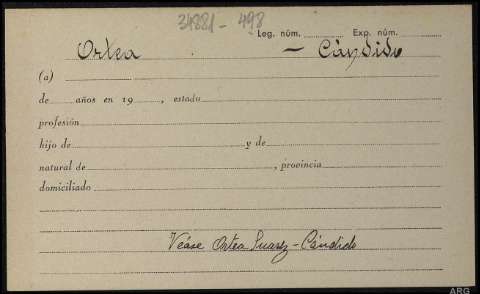 34881 - 498
Leg. núm. Exp. núm.
Ortea — Cándido
(a)
de años en 19 , estado
profesión
hijo de y de
natural de , provincia
domiciliado
Véase Ortea Suarez - Cándido
ARG